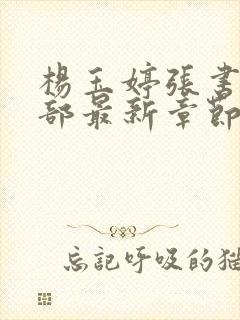 楊玉婷張書
部最新章節
忘記呼吸的猫